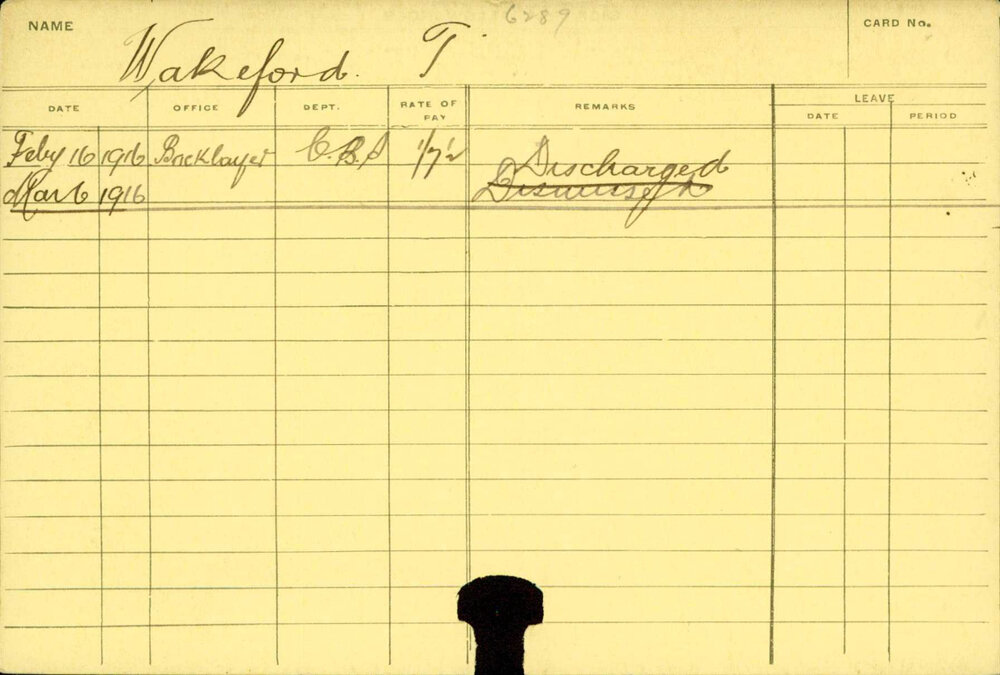 6289
NAME Wakeford. T CARD No.
DATE OFFICE DEPT. RATE OF PAY REMARKS LEAVE
DATE PERIOD
Feby 16 1916 Bricklayer C.B.S 1/7½ Discharged
Mar 6 1916